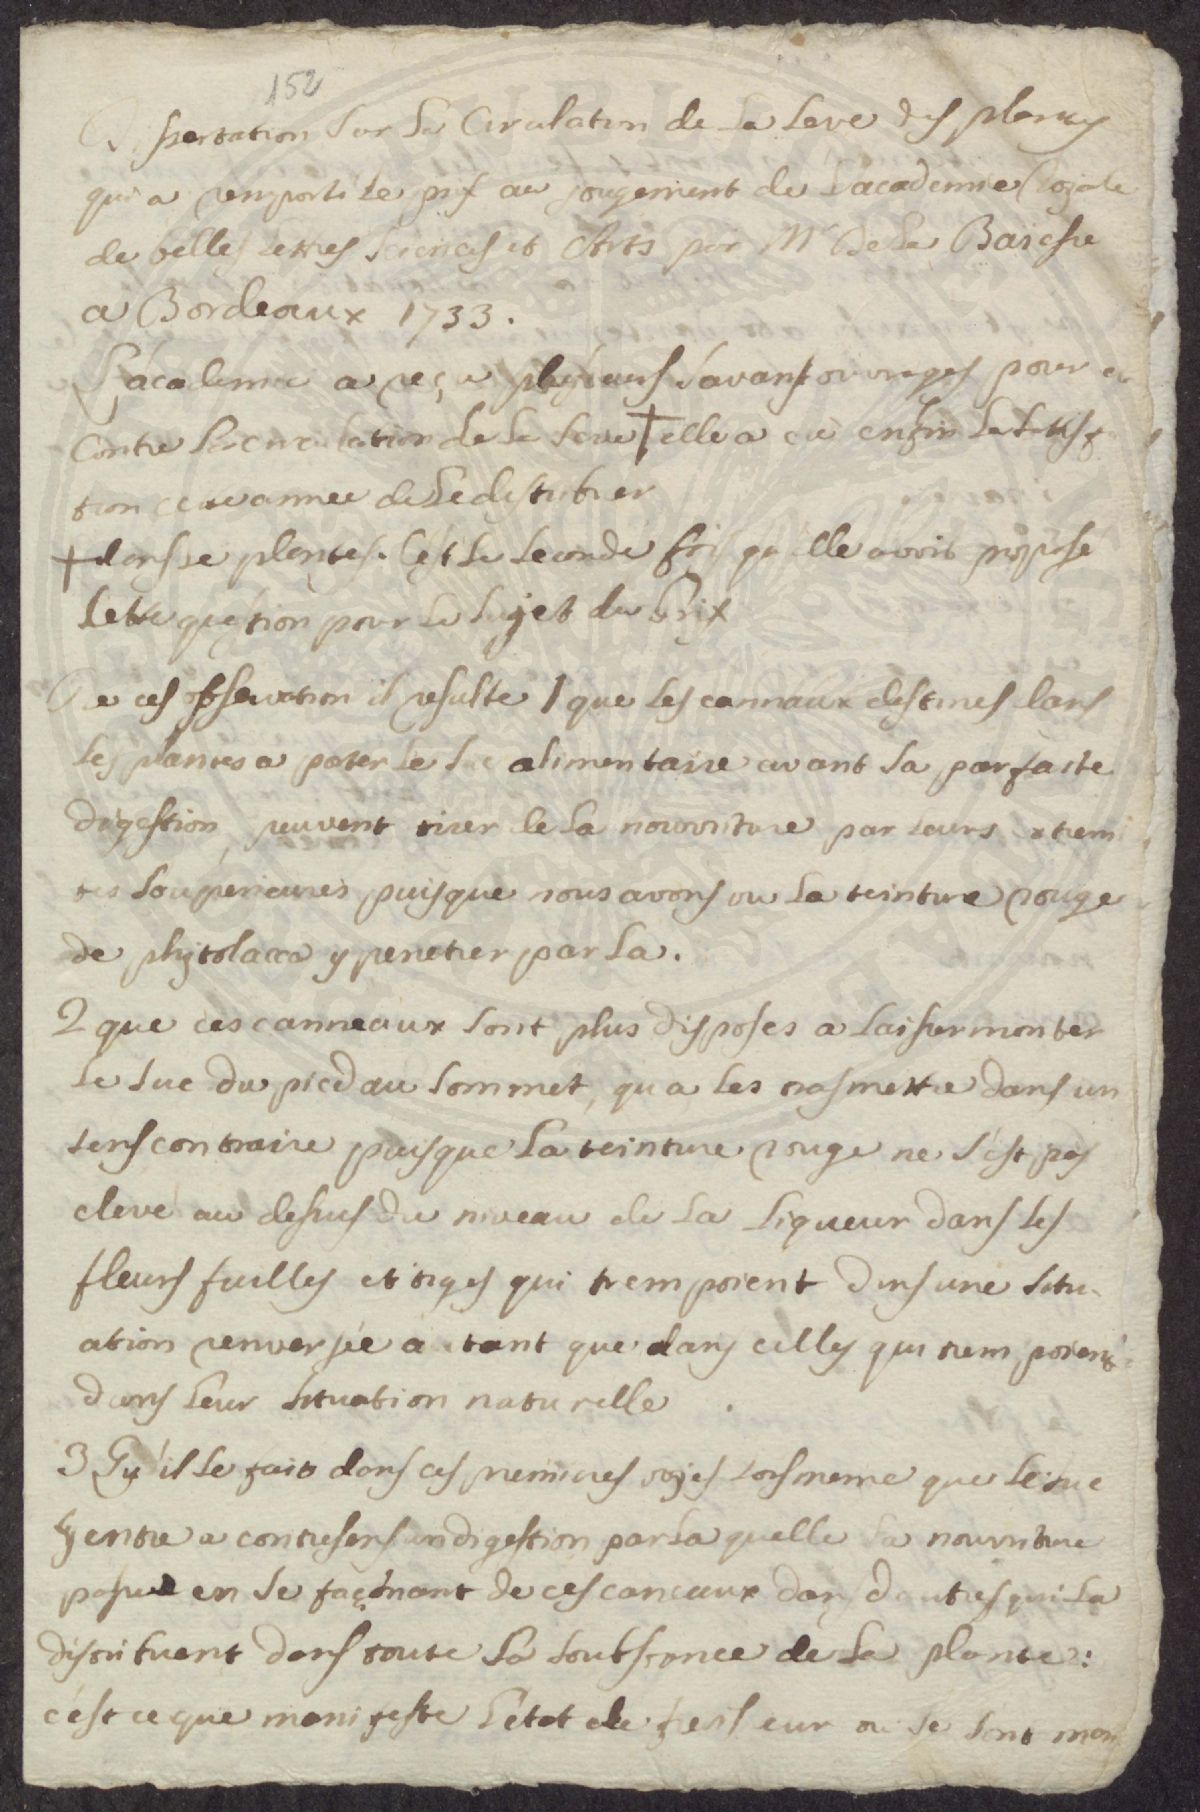 152
Dissertation sur la Circulation de la seve des plantes
qui a remporté le prix au jougement de l'academie Royale
de belles lettres sciences et Arts par Mr De la Baisse
a Bordeaux 1733.
L'academie a reçu plusieurs savans ouvrages pour et
contre la circulation de la seve † elle a eu enfin la satisfa
tion cette année de le distribuer
† dans le plantes. C'est la seconde fois qu'elle avoit proposé
cette question pour le sujet du Prix
De ces observation il resulte 1 que les cannaux destines dans
les plantes a porter le suc alimentaire avant sa parfaite
digestion, peuvent tirer de la nouriture par leurs extremi
tes soupérieures puisque nous avons vu la teinture rouge
de phytolacca y penetrer par la.
2 que ces canneaux sont plus disposes a laisser monter
le suc du pied au sommet, qu a les trasmettre dans un
sens contraire puisque la teinture rouge ne s'est pas
elevé au dessus du niveau de la liqueur dans les
fleurs fuilles et tiges qui trempoient dans une situ-
ation renversée autant que dans celles qui trempoient
dans leur situation naturelle.
3 Qu'il se fait dans ces premieres voyes lors meme que le suc
y entre a contresens un digestion par la quelle la nouriture
passe en se façonant de ces caneaux dans d'autres qui la
distribuent dans toute la soubstance de la plante:
c'est ce que manifeste l'etat de fraisheur ou se sont mon